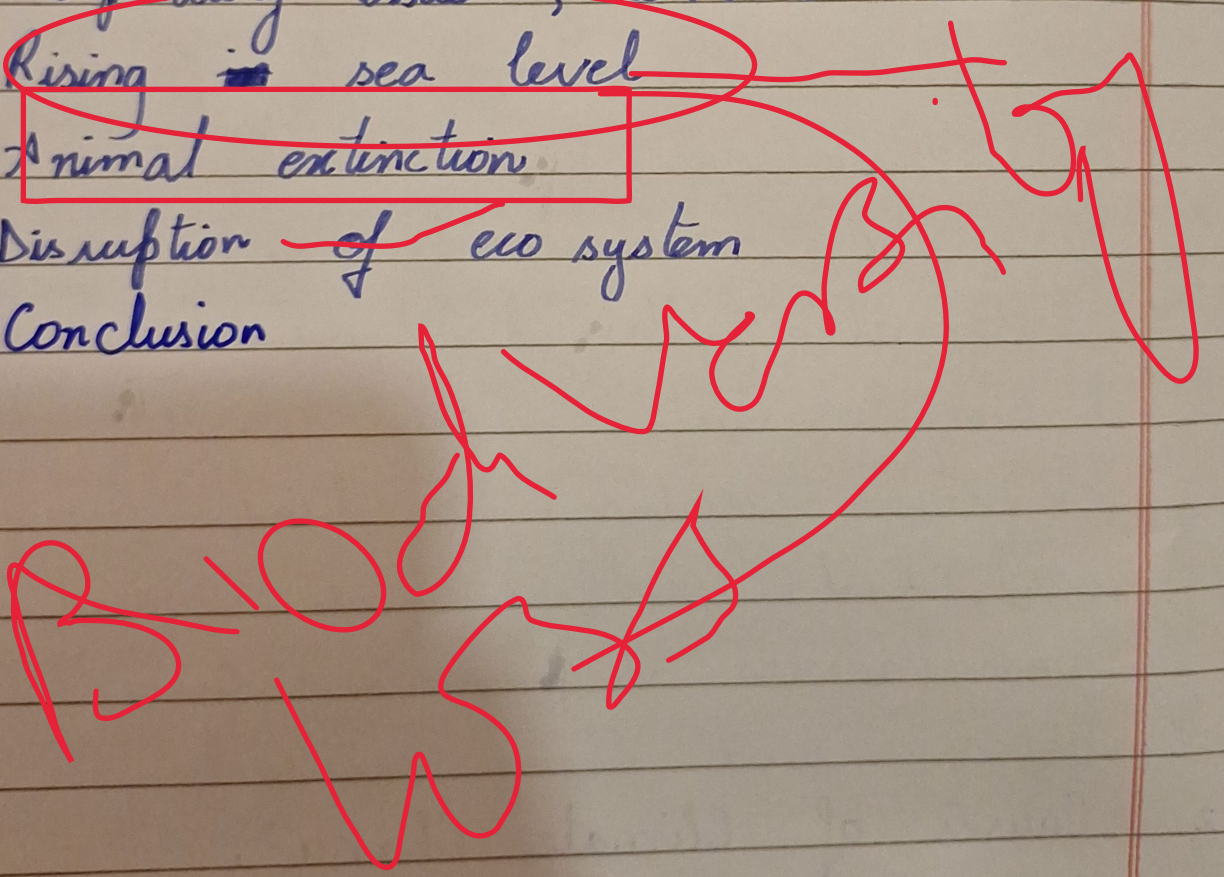 Rising sea level
Animal extinction
Disruption of eco system
Conclusion
Biodiversity